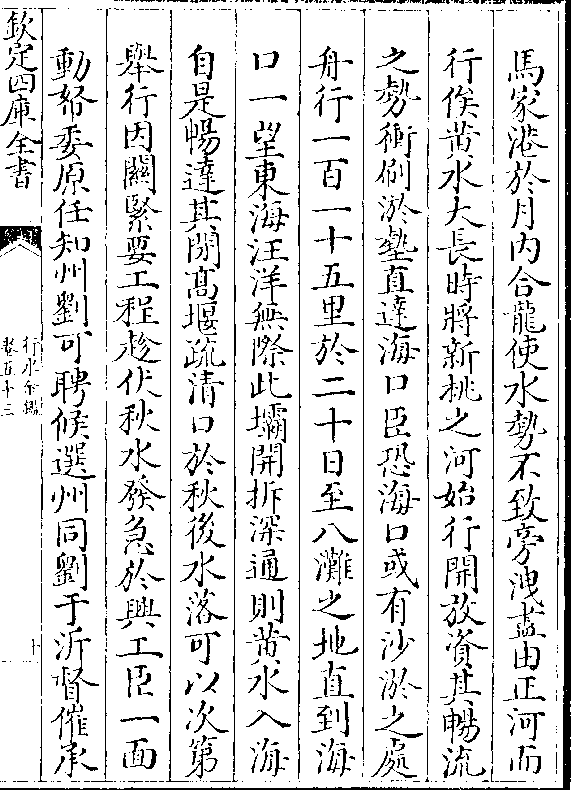 馬家港於月内合龍使水勢不致旁洩盡由正河而
行俟黄水大長時將新挑之河始行開放資其暢流
之勢衝刷淤墊直達海口臣恐海口或有沙淤之處
舟行一百一十五里於二十日至八灘之地直到海
口一望東海汪洋無際此壩開拆深通則黄水入海
自是暢達其閉髙堰疏清口於秋後水落可以次第
舉行因關緊要工程趁伏秋水發急於興工臣一面
動帑委原任知州劉可聘候選州同劉于沂督催承
欽定四庫全書
行水金鑑
卷五十三